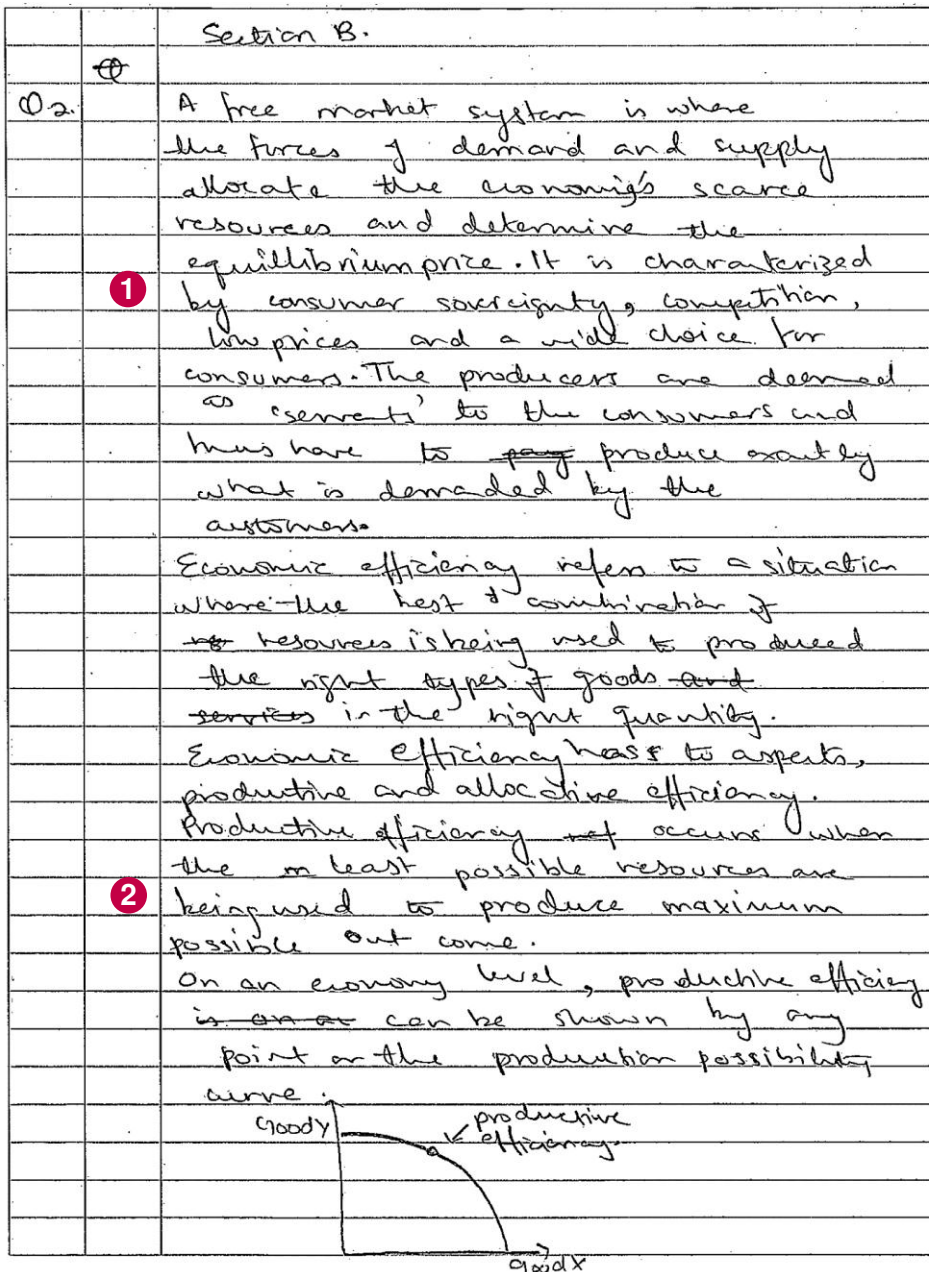 Section B.
Q2. A free market system is where
the forces of demand and supply
allocate the economig's scarce
resources and determine the
equillibrium price. It is charaterized
1
by consumer sovereignty, competition,
low prices and a wide choice for
consumers. The producers are deemed
as 'servents' to the consumers and
thus have to pay produce exactly
what is demaded by the
customers.
Economic efficiency refers to a situation
where the best combination of
resources is being used to produced
the right types of goods and
services in the right quantity.
Economic efficiency has to aspects,
productive and allocative efficiency.
Productive efficiency occurs when
the least possible resources are
2
being used to produce maximum
possible out come.
On an economy level, productive efficiency
is on can be shown by any
point on the production possibility
curve.
Good Y
productive
efficiency.
Good X